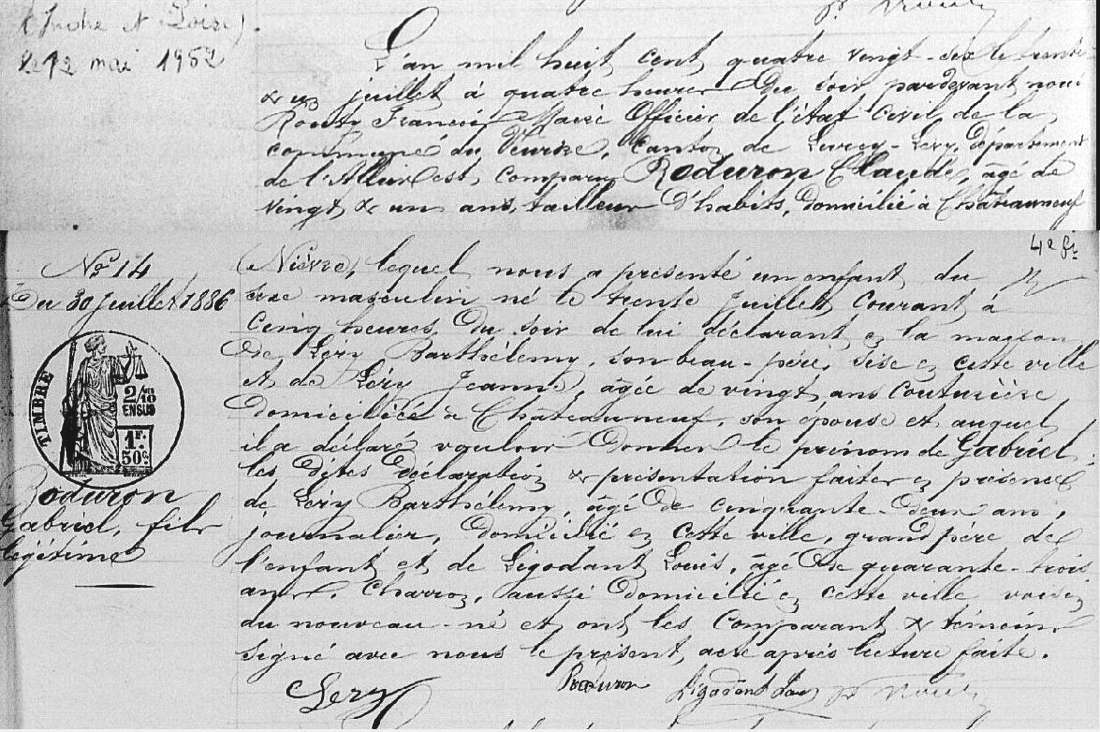 (Indre et Loire).
le 12 mai 1952
L'an mil huit cent quatre vingt-six le trente
& un juillet à quatre heures du soir pardevant nous
François Maire Officier de l'état civil de la
commune du Veurdre, Canton de Lurcy-Levy, Département
de l'Allier est comparu Roduron Claude, âgé de
vingt & un ans, tailleur d'habits, domicilié à Châteauneuf
4e f
(Nièvre), lequel nous a présenté un enfant du
sexe masculin né le trente Juillet courant à
cinq heures du soir de lui déclarant en la maison
de Léry Barthélemy, son beau-père, sise en cette ville
et de Léry Jeanne, âgée de vingt ans couturière
domiciliée à Châteauneuf, son épouse et auquel
il a déclaré vouloir donner le prénom de Gabriel.
les dites déclaration & présentation faites en présence
de Léry Barthélemy, âgé de cinquante-deux ans,
journalier, domicilié en cette ville, grand père de
l'enfant et de Ligodant Louis, âgé de quarante-trois
ans, Charron, aussi domicilié en cette ville voisin
du nouveau-né et ont les comparant & témoins
signé avec nous le présent acte après lecture faite.
Lery Roduron Ligodant
No 14
Du 30 juillet 1886
TIMBRE
2/10 EN SUS
1F. 50c.
Roduron
Gabriel, fils
légitime